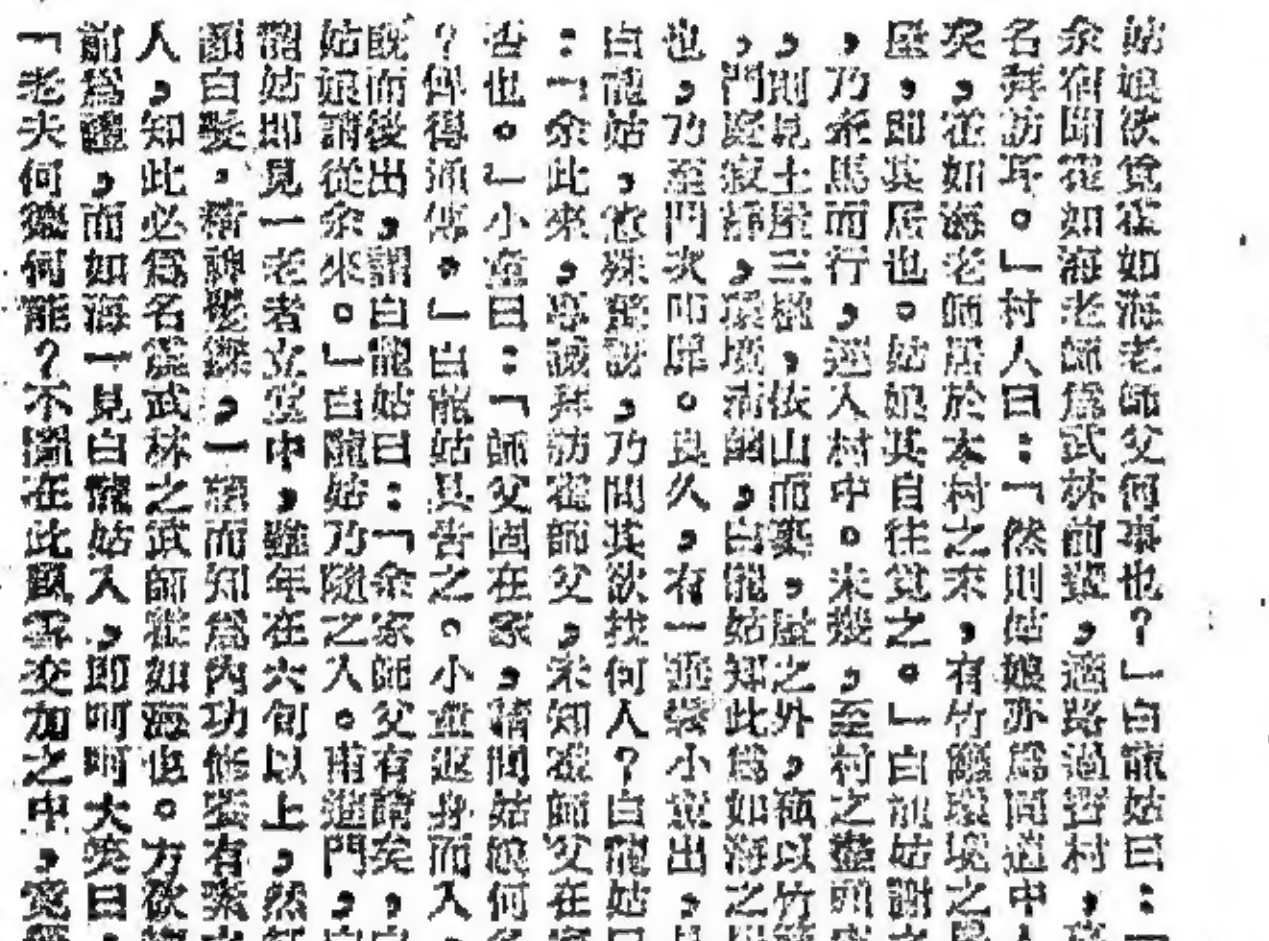 姑娘欲覓崔如海老師父何事也？」白龍姑曰：「
余宿聞崔如海老師爲武林前輩，適路過貴村，
名拜訪耳。」村人曰：「然則姑娘亦爲同道中
矣，崔如海老師居於本村之末，有竹籬環境之
屋，卽其居也。姑娘其自往覓之。」白龍姑謝
，乃牽馬而行，逕入村中。未幾，至村之盡頭
，則見土屋三楹，依山而築，屋之外，環以竹籬
，門庭寂靜，環境清幽，白龍姑知此爲如海之
也，乃至門次叩扉。良久，有一垂髫小童出，
白龍姑，意殊驚訝，乃問其欲找何人？白龍姑
：「余此來，專誠拜訪崔師父，未知崔師父在
否也。」小童曰：「師父固在家，請問姑娘何
？俾得通傳。」白龍姑具告之。小童返身而入
旣而後出，謂白龍姑曰：「余家師父有請矣，
姑娘請從余來。」白龍姑乃隨之入。甫進門，
龍姑卽見一老者立堂中，雖年在六旬以上，然
顏白髮，精神矍鑠，一望而知爲內功修養有素
人，知此必爲名震武林之武師崔如海也。方欲
前爲禮，而如海一見白龍姑入，卽呵呵大笑曰：
「老夫何德何能？不圖在此風雪交加之中，